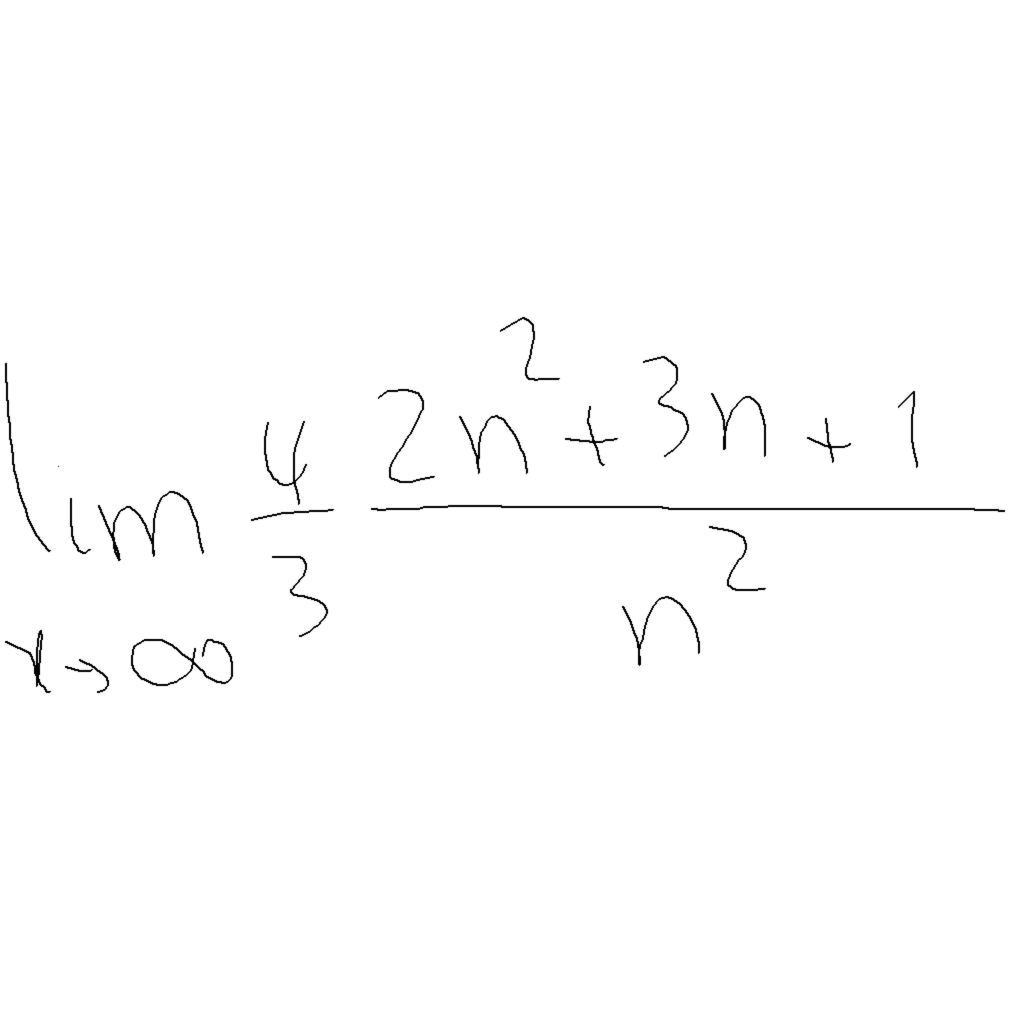 lim 4/3 (2n² + 3n + 1)/n²
x→∞